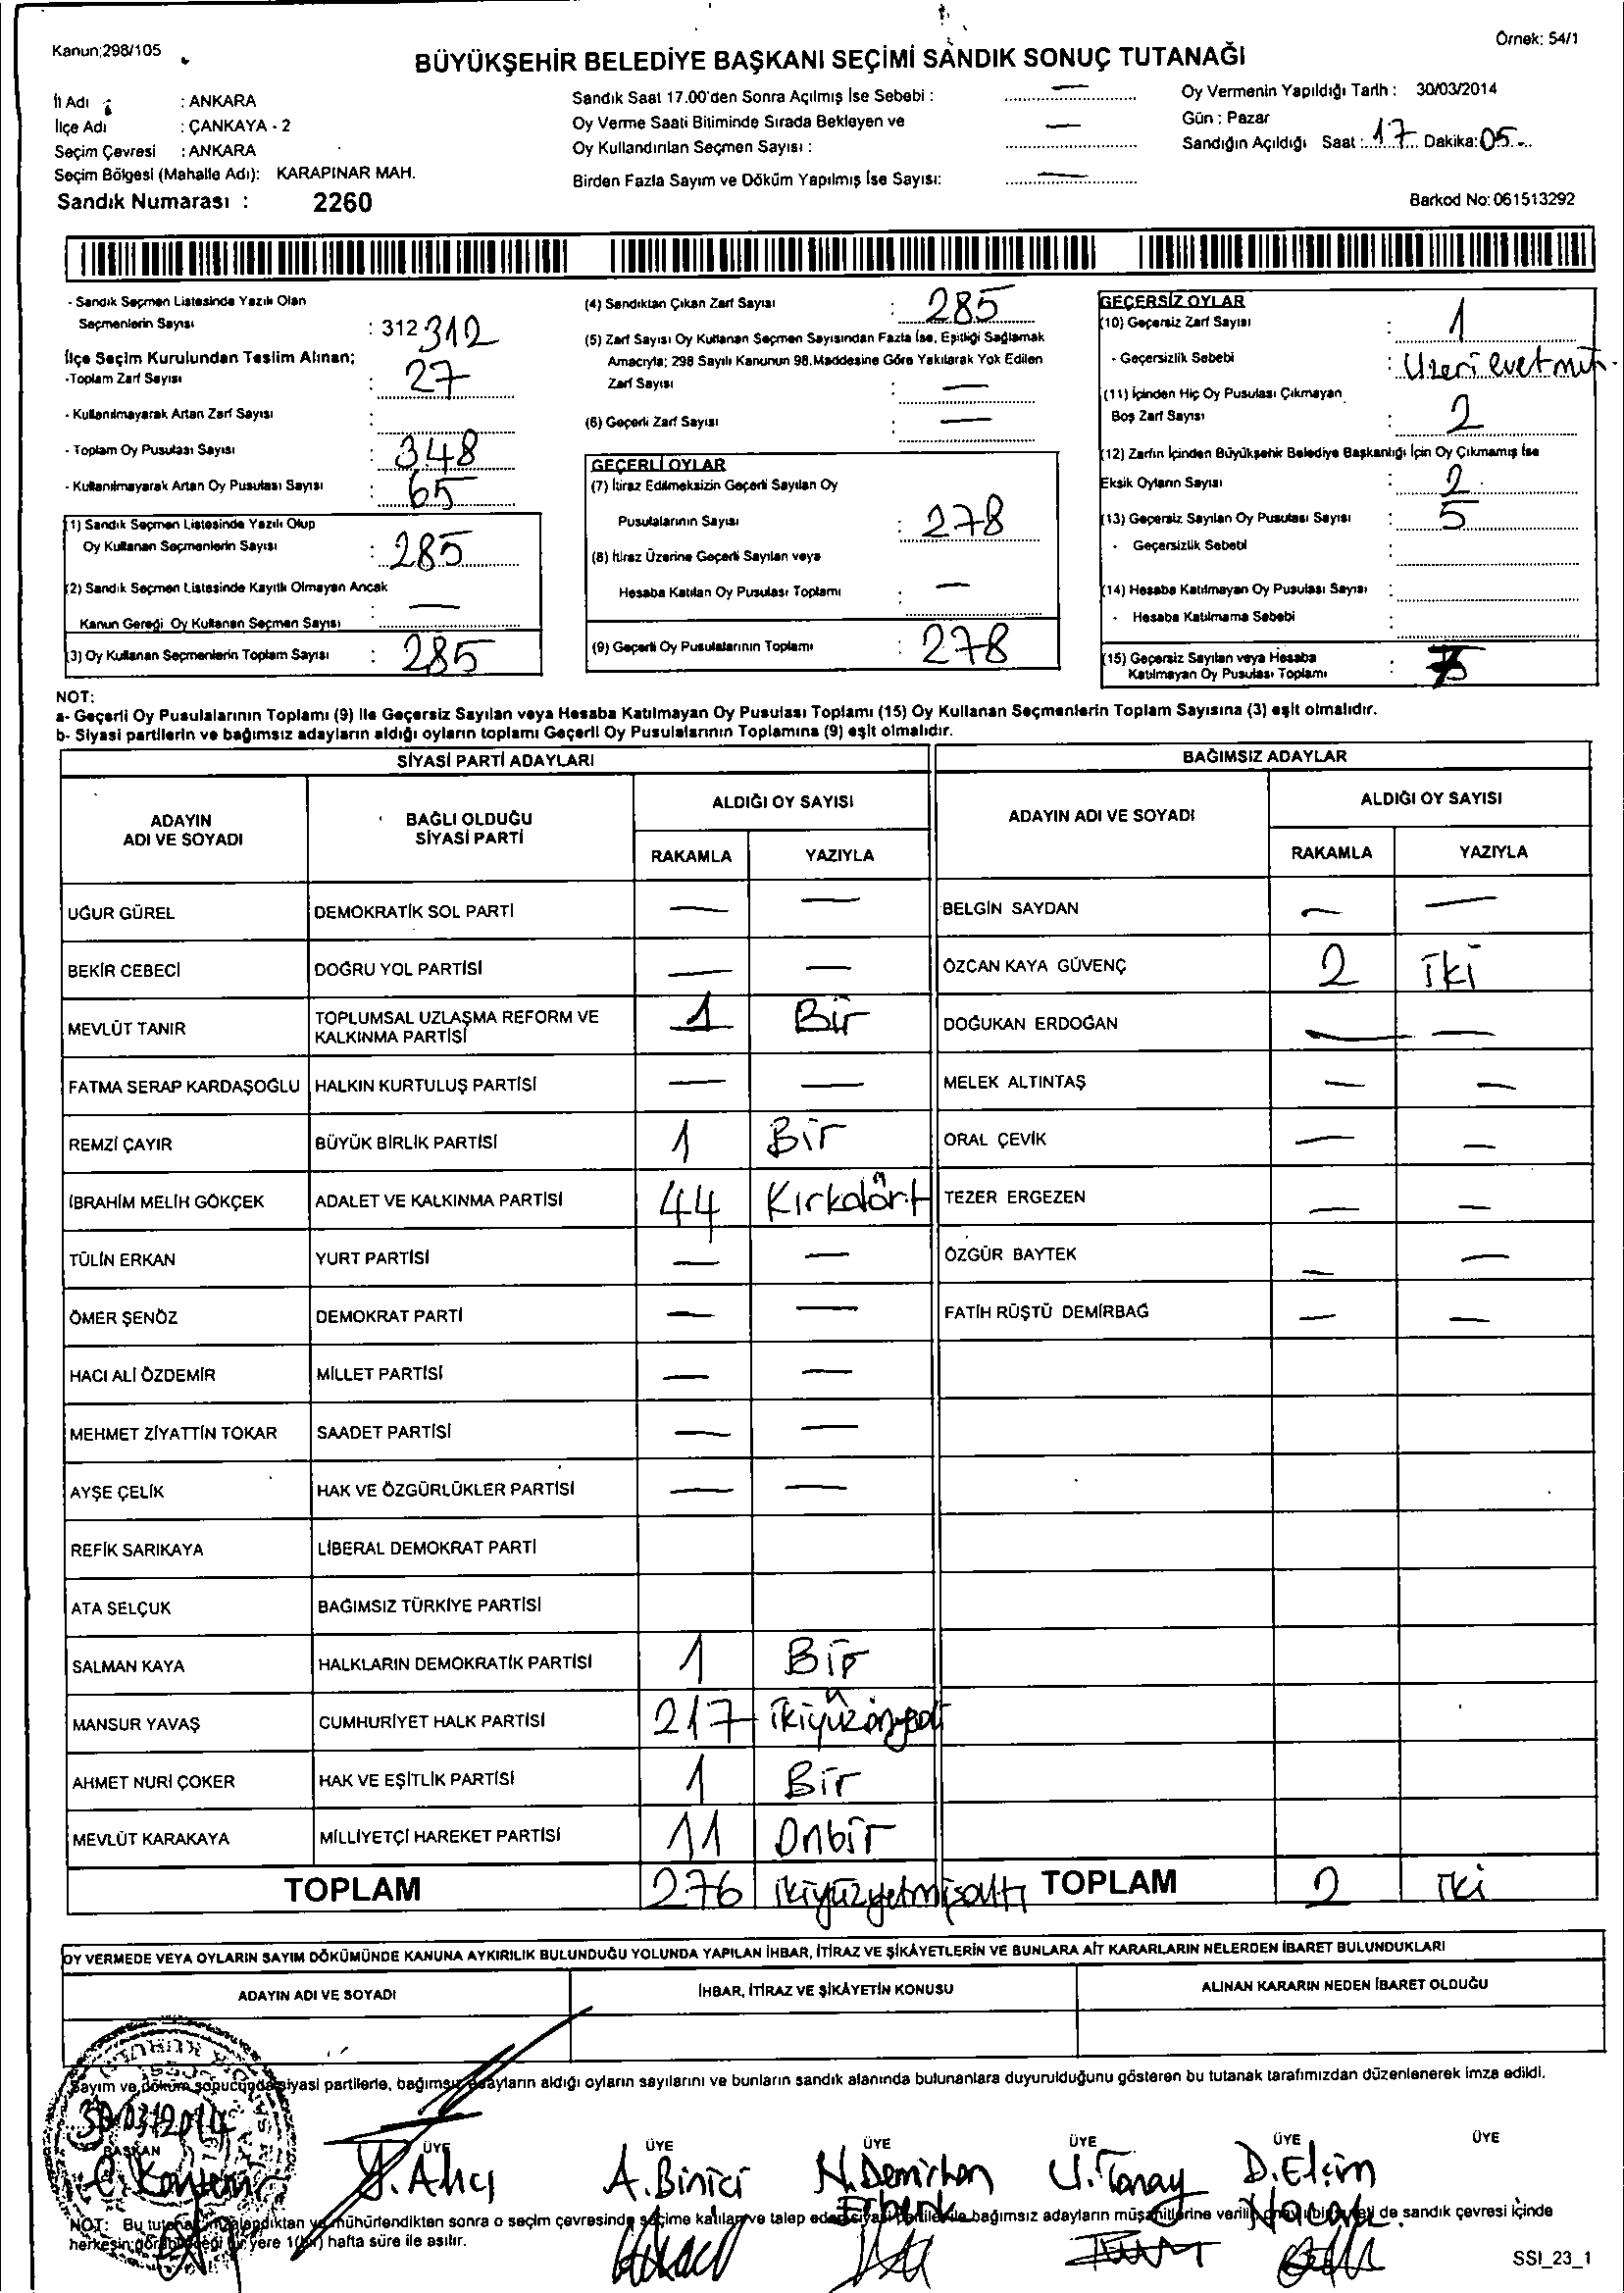 Kanun;298/105
Örnek: 54/1
BÜYÜKŞEHİR BELEDİYE BAŞKANI SEÇİMİ SANDIK SONUÇ TUTANAĞI
İl Adı : ANKARA
İlçe Adı : ÇANKAYA - 2
Seçim Çevresi : ANKARA
Seçim Bölgesi (Mahalle Adı): KARAPINAR MAH.
Sandık Numarası : 2260
Sandık Saat 17.00'den Sonra Açılmış İse Sebebi : —
Oy Verme Saati Bitiminde Sırada Bekleyen ve
Oy Kullandırılan Seçmen Sayısı : —
Birden Fazla Sayım ve Döküm Yapılmış İse Sayısı: —
Oy Vermenin Yapıldığı Tarih : 30/03/2014
Gün : Pazar
Sandığın Açıldığı Saat : 17 Dakika: 05
Barkod No: 061513292
- Sandık Seçmen Listesinde Yazılı Olan
Seçmenlerin Sayısı : 312 312
İlçe Seçim Kurulundan Teslim Alınan;
-Toplam Zarf Sayısı : 27
- Kullanılmayarak Artan Zarf Sayısı :
- Toplam Oy Pusulası Sayısı : 348
- Kullanılmayarak Artan Oy Pusulası Sayısı : 65
(1) Sandık Seçmen Listesinde Yazılı Olup
Oy Kullanan Seçmenlerin Sayısı : 285
(2) Sandık Seçmen Listesinde Kayıtlı Olmayan Ancak
Kanun Gereği Oy Kullanan Seçmen Sayısı : —
(3) Oy Kullanan Seçmenlerin Toplam Sayısı : 285
(4) Sandıktan Çıkan Zarf Sayısı : 285
(5) Zarf Sayısı Oy Kullanan Seçmen Sayısından Fazla İse, Eşitliği Sağlamak
Amacıyla; 298 Sayılı Kanunun 98.Maddesine Göre Yakılarak Yok Edilen
Zarf Sayısı : —
(6) Geçerli Zarf Sayısı : —
GEÇERLİ OYLAR
(7) İtiraz Edilmeksizin Geçerli Sayılan Oy
Pusulalarının Sayısı : 278
(8) İtiraz Üzerine Geçerli Sayılan veya
Hesaba Katılan Oy Pusulası Toplamı : —
(9) Geçerli Oy Pusulalarının Toplamı : 278
GEÇERSİZ OYLAR
(10) Geçersiz Zarf Sayısı : 1
- Geçersizlik Sebebi : Üzeri evet
(11) İçinden Hiç Oy Pusulası Çıkmayan
Boş Zarf Sayısı : 2
(12) Zarfın İçinden Büyükşehir Belediye Başkanlığı İçin Oy Çıkmamış İse
Eksik Oyların Sayısı : 2
(13) Geçersiz Sayılan Oy Pusulası Sayısı : 5
- Geçersizlik Sebebi :
(14) Hesaba Katılmayan Oy Pusulası Sayısı :
- Hesaba Katılmama Sebebi :
(15) Geçersiz Sayılan veya Hesaba
Katılmayan Oy Pusulası Toplamı :
NOT:
a- Geçerli Oy Pusulalarının Toplamı (9) ile Geçersiz Sayılan veya Hesaba Katılmayan Oy Pusulası Toplamı (15) Oy Kullanan Seçmenlerin Toplam Sayısına (3) eşit olmalıdır.
b- Siyasi partilerin ve bağımsız adayların aldığı oyların toplamı Geçerli Oy Pusulalarının Toplamına (9) eşit olmalıdır.
SİYASİ PARTİ ADAYLARI
ADAYIN ADI VE SOYADI
BAĞLI OLDUĞU SİYASİ PARTİ
ALDIĞI OY SAYISI
RAKAMLA YAZIYLA
UĞUR GÜREL DEMOKRATİK SOL PARTİ — —
BEKİR CEBECİ DOĞRU YOL PARTİSİ — —
MEVLÜT TANIR TOPLUMSAL UZLAŞMA REFORM VE KALKINMA PARTİSİ 1 Bir
FATMA SERAP KARDAŞOĞLU HALKIN KURTULUŞ PARTİSİ — —
REMZİ ÇAYIR BÜYÜK BİRLİK PARTİSİ 1 Bir
İBRAHİM MELİH GÖKÇEK ADALET VE KALKINMA PARTİSİ 44 Kırkdört
TÜLİN ERKAN YURT PARTİSİ — —
ÖMER ŞENÖZ DEMOKRAT PARTİ — —
HACI ALİ ÖZDEMİR MİLLET PARTİSİ — —
MEHMET ZİYATTİN TOKAR SAADET PARTİSİ — —
AYŞE ÇELİK HAK VE ÖZGÜRLÜKLER PARTİSİ — —
REFİK SARIKAYA LİBERAL DEMOKRAT PARTİ
ATA SELÇUK BAĞIMSIZ TÜRKİYE PARTİSİ
SALMAN KAYA HALKLARIN DEMOKRATİK PARTİSİ 1 Bir
MANSUR YAVAŞ CUMHURİYET HALK PARTİSİ 217 ikiyüzonyedi
AHMET NURİ ÇOKER HAK VE EŞİTLİK PARTİSİ 1 Bir
MEVLÜT KARAKAYA MİLLİYETÇİ HAREKET PARTİSİ 11 Onbir
TOPLAM 276 ikiyüzyetmişaltı
BAĞIMSIZ ADAYLAR
ADAYIN ADI VE SOYADI
ALDIĞI OY SAYISI
RAKAMLA YAZIYLA
BELGİN SAYDAN — —
ÖZCAN KAYA GÜVENÇ 2 iki
DOĞUKAN ERDOĞAN — —
MELEK ALTINTAŞ — —
ORAL ÇEVİK — —
TEZER ERGEZEN — —
ÖZGÜR BAYTEK — —
FATİH RÜŞTÜ DEMİRBAĞ — —
TOPLAM 2 iki
OY VERMEDE VEYA OYLARIN SAYIM DÖKÜMÜNDE KANUNA AYKIRILIK BULUNDUĞU YOLUNDA YAPILAN İHBAR, İTİRAZ VE ŞİKÂYETLERİN VE BUNLARA AİT KARARLARIN NELERDEN İBARET BULUNDUKLARI
ADAYIN ADI VE SOYADI
İHBAR, İTİRAZ VE ŞİKÂYETİN KONUSU
ALINAN KARARIN NEDEN İBARET OLDUĞU
Sayım ve döküm sonucunda siyasi partilerle, bağımsız adayların aldığı oyların sayılarını ve bunların sandık alanında bulunanlara duyurulduğunu gösteren bu tutanak tarafımızdan düzenlenerek imza edildi.
30/03/2014
BAŞKAN ÜYE ÜYE ÜYE ÜYE ÜYE ÜYE
A. Binici N. Demirhan D. Elçin
NOT: Bu tutanak düzenlendikten ve mühürlendikten sonra o seçim çevresinde seçime katılan ve talep eden siyasi partiler ile bağımsız adayların müşahitlerine verilir de sandık çevresi içinde
herkesin görebileceği bir yere 1(bir) hafta süre ile asılır.
SSI_23_1